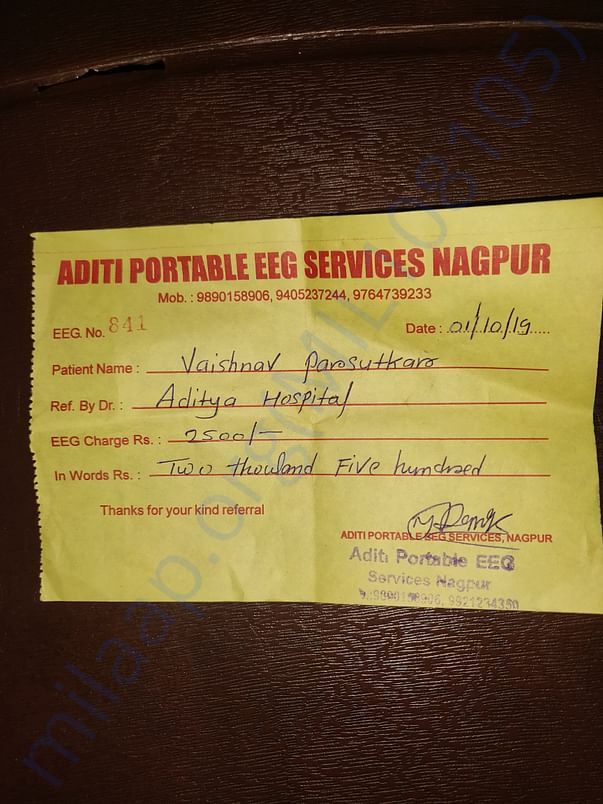 ADITI PORTABLE EEG SERVICES NAGPUR
Mob. : 9890158906, 9405237244, 9764739233
EEG. No. 841
Date : 01/10/19
Patient Name : Vaishnav Parsutkar
Ref. By Dr. : Aditya Hospital
EEG Charge Rs. : 2500/-
In Words Rs. : Two thousand Five hundred
Thanks for your kind referral
ADITI PORTABLE EEG SERVICES, NAGPUR
Aditi Portable EEG
Services Nagpur
9890158906, 9921234350
milaap.org(MIL081105)